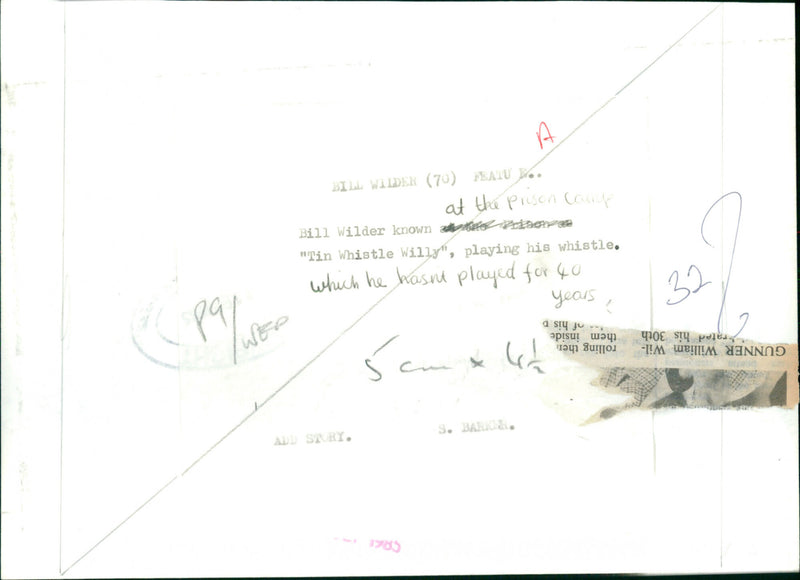 A
BILL WILDER (70) FEATU E..
at the Prison Camp
Bill Wilder known
"Tin Whistle Willy", playing his whistle.
which he hasnt played for 40
years
32
P9/WEP
GUNNER William Wil-
rated his 30th
rolling
them inside
of his
5cm x 4½
ADD STORY.
S. BARKER.
1982